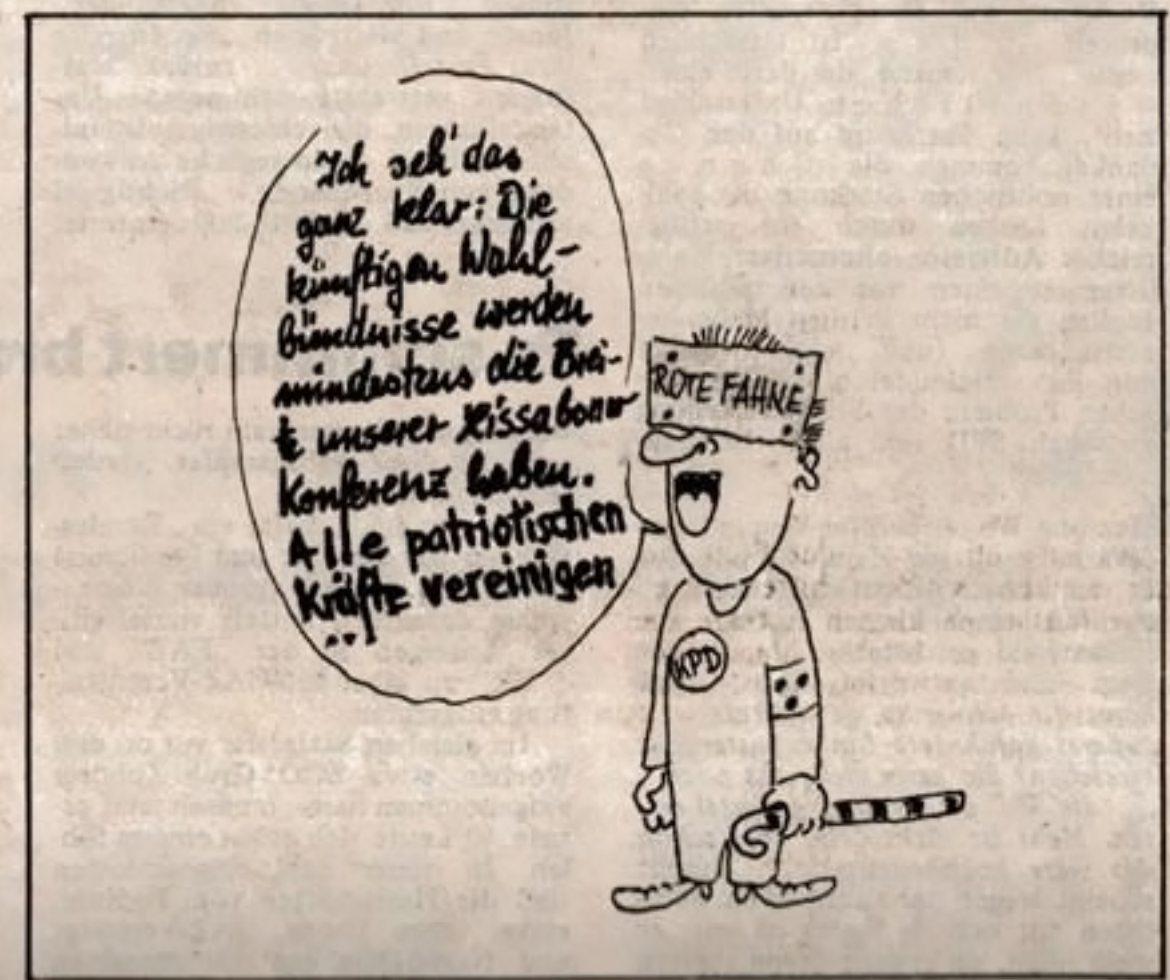 Ich seh' das
ganz klar: Die
künftigen Wahl-
bündnisse werden
mindestens die Brei-
te unserer Lissaboner
Konferenz haben.
Alle patriotischen
Kräfte vereinigen
..!
ROTE FAHNE
KPD